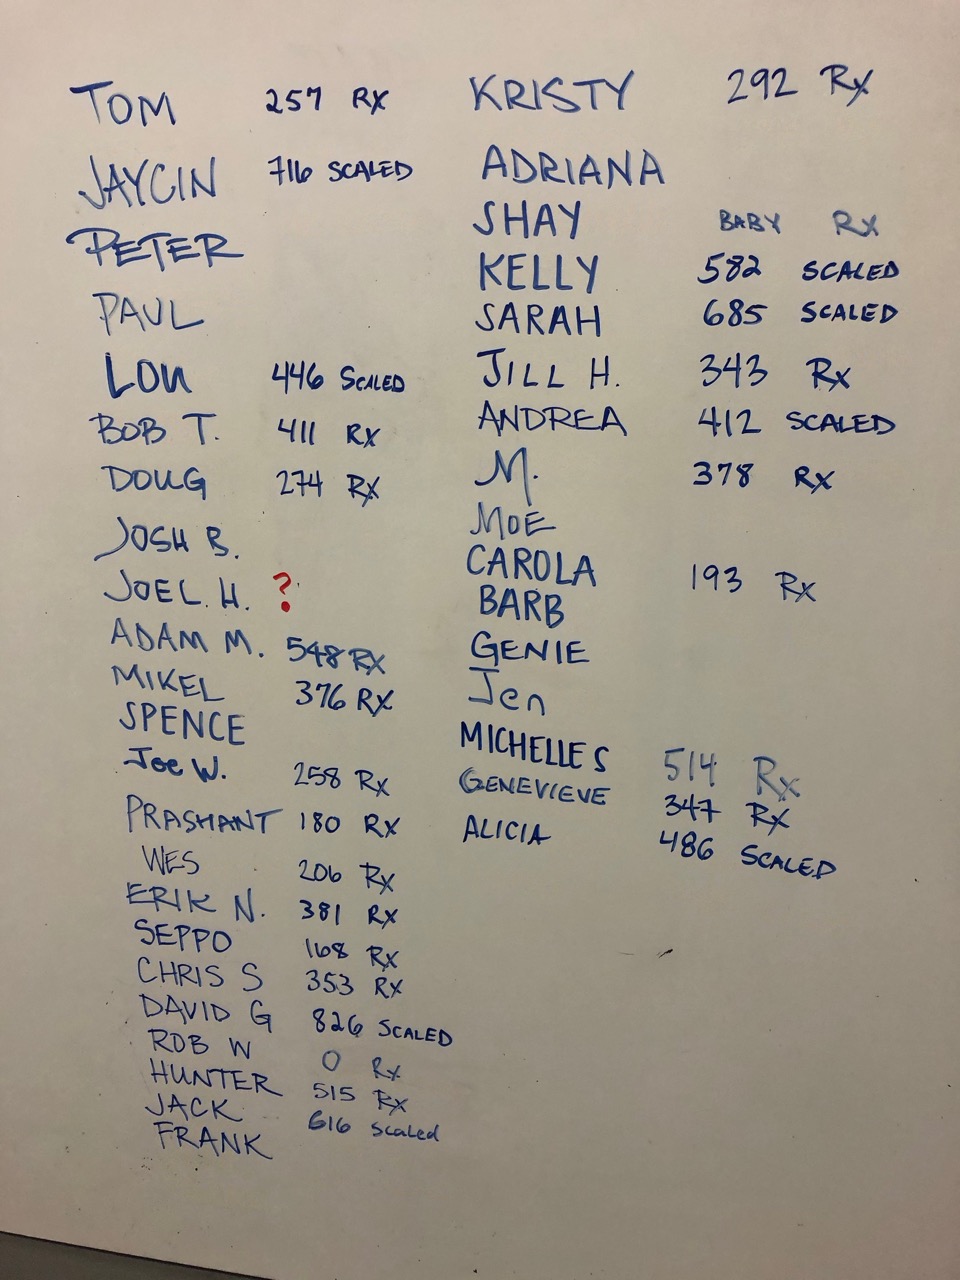 TOM 257 Rx
JAYCIN 716 SCALED
PETER
PAUL
LOU 446 SCALED
BOB T. 411 Rx
DOUG 274 Rx
JOSH B.
JOEL H. ?
ADAM M. 548 Rx
MIKEL 376 Rx
SPENCE
Joe W. 258 Rx
PRASHANT 180 Rx
WES 206 Rx
ERIK N. 381 Rx
SEPPO 168 Rx
CHRIS S 353 Rx
DAVID G 826 SCALED
ROB W 0 Rx
HUNTER 515 Rx
JACK 616 Scaled
FRANK
KRISTY 292 Rx
ADRIANA
SHAY BABY Rx
KELLY 582 SCALED
SARAH 685 SCALED
JILL H. 343 Rx
ANDREA 412 SCALED
M. 378 Rx
MOE
CAROLA 193 Rx
BARB
GENIE
Jen
MICHELLE S 514 Rx
GENEVIEVE 347 Rx
ALICIA 486 SCALED